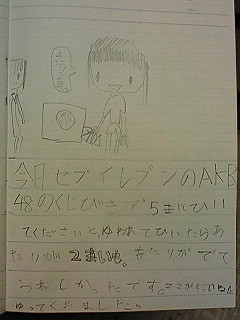 今日セブイレブンのAKB
48のくじびきで5まいひい
てくださいとゆわれてひいたらあ
たりが2まいも。あたりがでて
うれしかったです。
ゆってくれました。